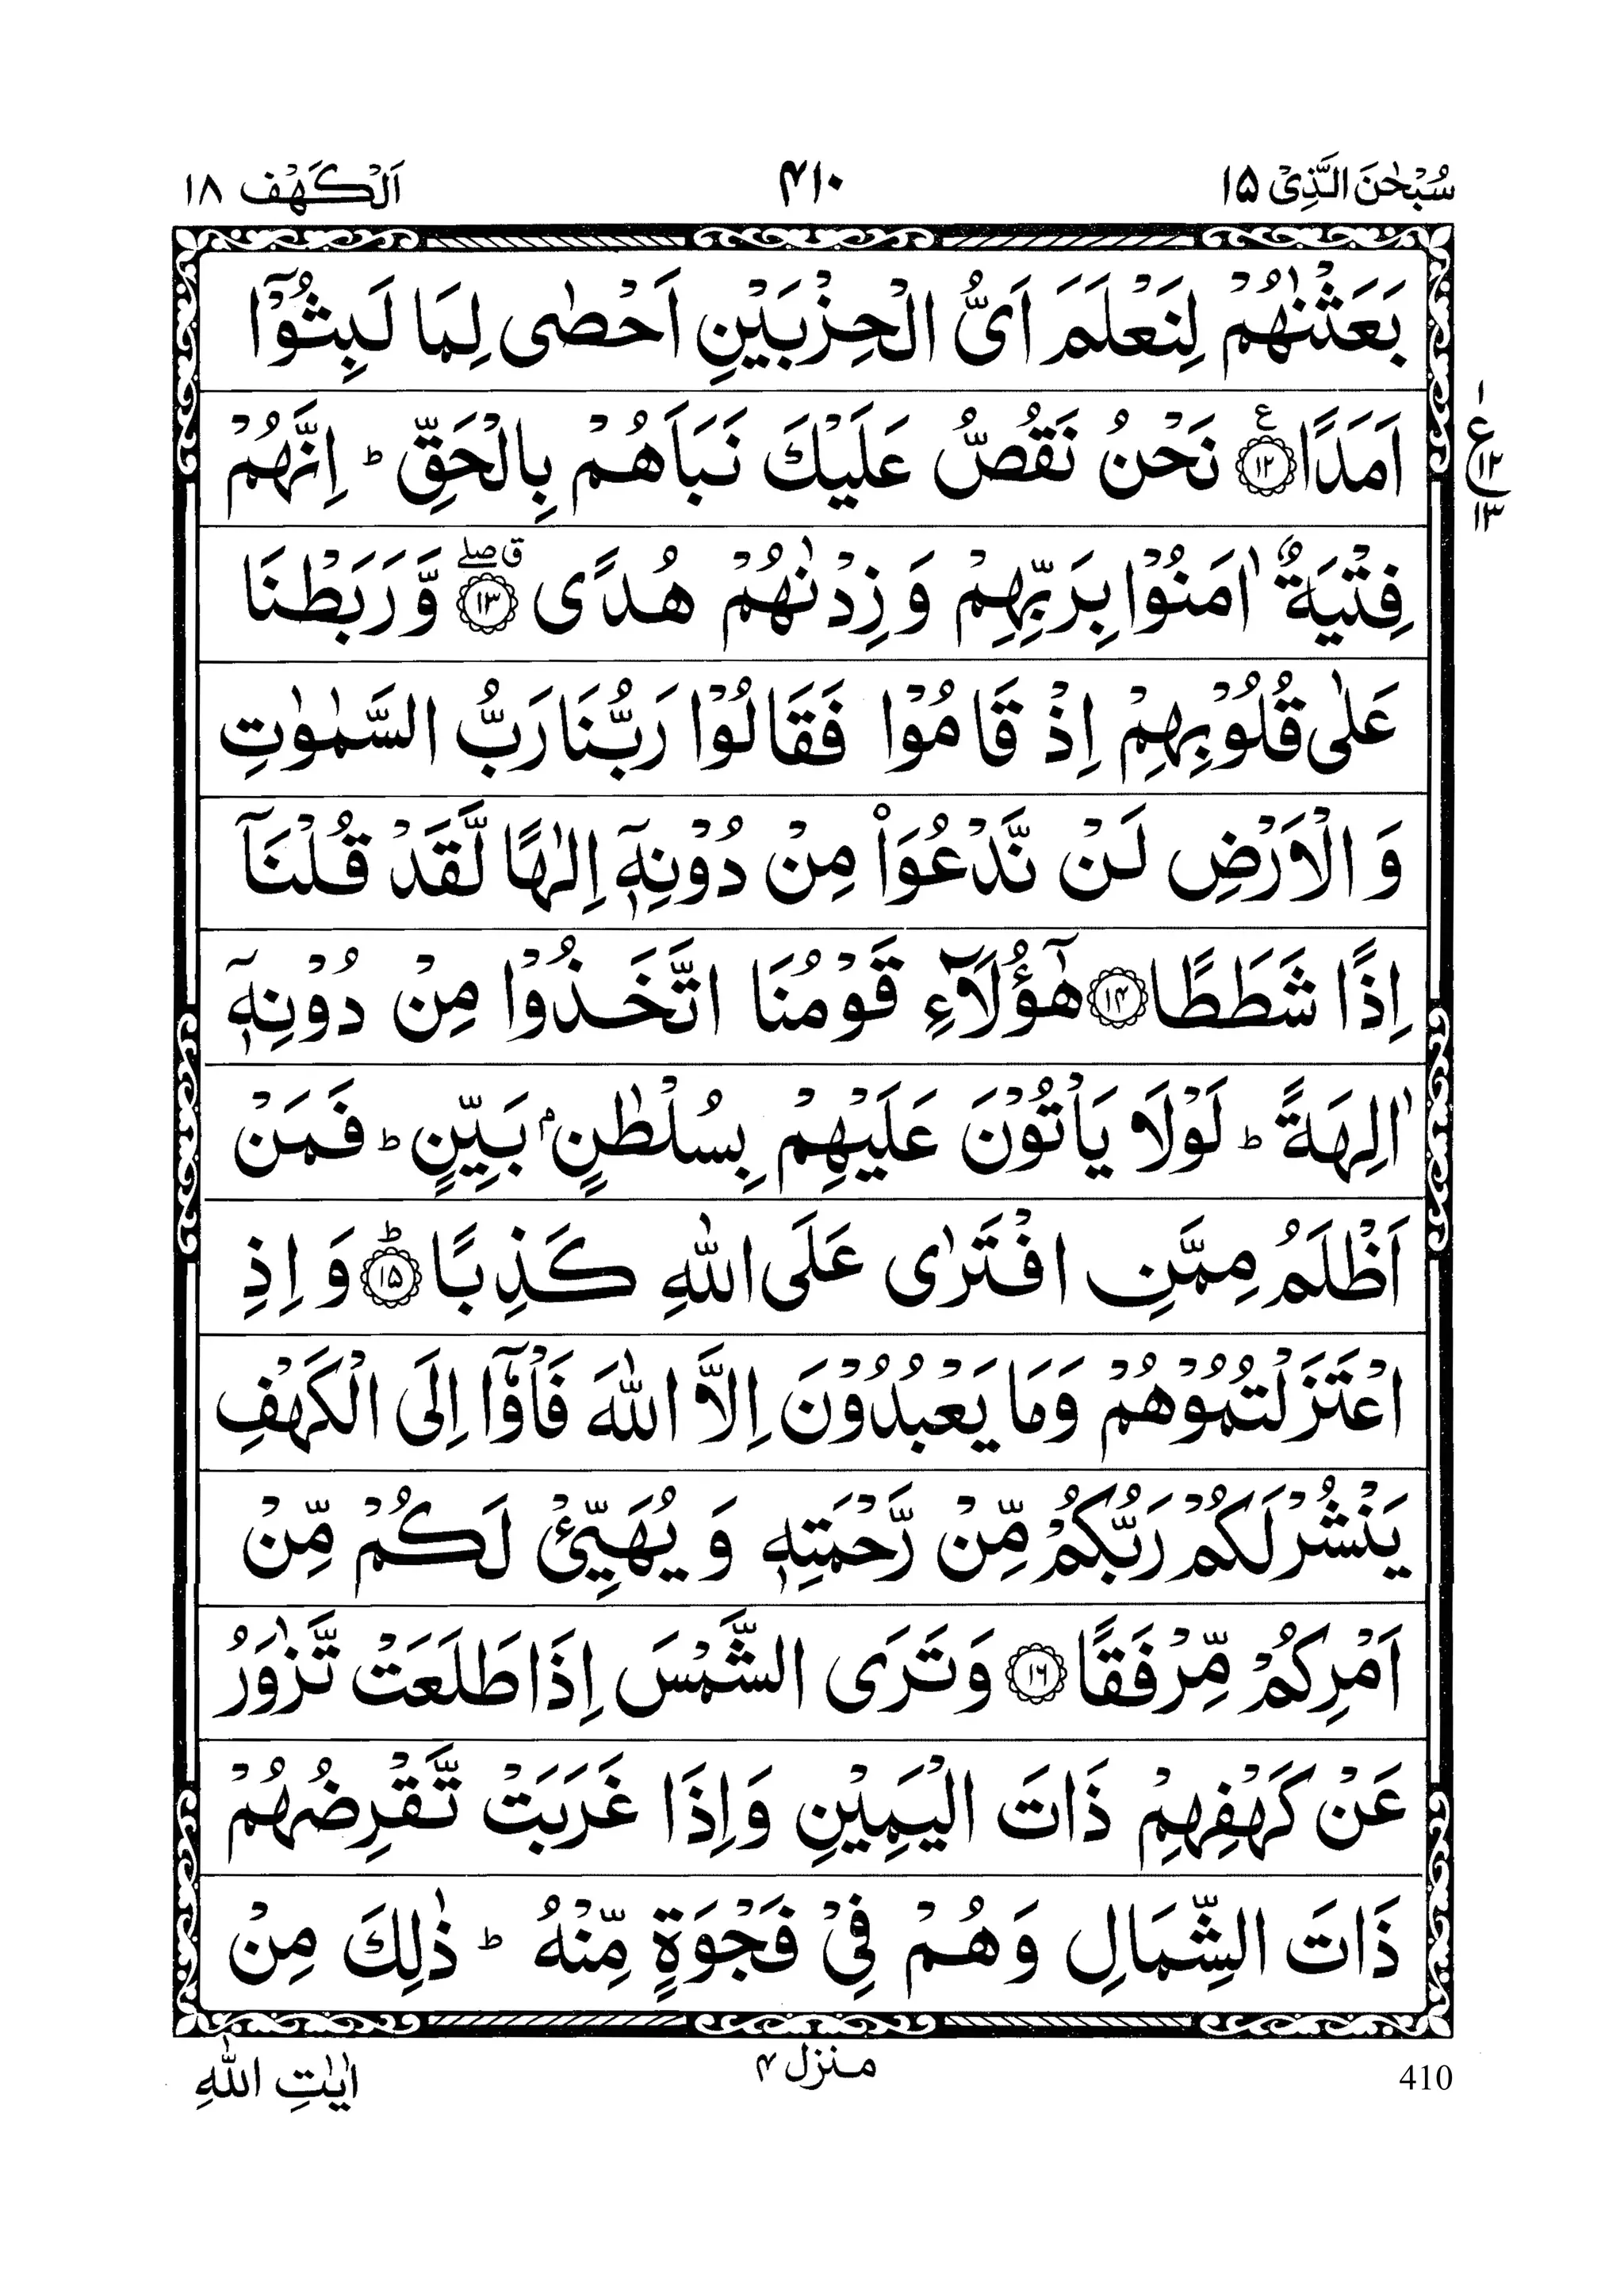 سُبْحٰنَ الَّذِیْۤ ١٥
٤١٠
اَلْكَهْف ١٨
بَعَثْنٰهُمْ لِنَعْلَمَ اَیُّ الْحِزْبَیْنِ اَحْصٰی لِمَا لَبِثُوْۤا
اَمَدًا ۧ﴿١٢﴾ نَحْنُ نَقُصُّ عَلَیْكَ نَبَاَهُمْ بِالْحَقِّ ؕ اِنَّهُمْ
١
ع
١٢
١٣
فِتْیَةٌ اٰمَنُوْا بِرَبِّهِمْ وَ زِدْنٰهُمْ هُدًی ﴿١٣﴾ ق صلے وَّ رَبَطْنَا
عَلٰی قُلُوْبِهِمْ اِذْ قَامُوْا فَقَالُوْا رَبُّنَا رَبُّ السَّمٰوٰتِ
وَ الْاَرْضِ لَنْ نَّدْعُوَا۠ مِنْ دُوْنِهٖۤ اِلٰهًا لَّقَدْ قُلْنَاۤ
اِذًا شَطَطًا ﴿١٤﴾ هٰۤؤُلَآءِ قَوْمُنَا اتَّخَذُوْا مِنْ دُوْنِهٖۤ
اٰلِهَةً ؕ لَوْلَا یَاْتُوْنَ عَلَیْهِمْ بِسُلْطٰنٍۭ بَیِّنٍ ؕ فَمَنْ
اَظْلَمُ مِمَّنِ افْتَرٰی عَلَی اللّٰهِ كَذِبًا ؕ﴿١٥﴾ وَ اِذِ
اعْتَزَلْتُمُوْهُمْ وَمَا یَعْبُدُوْنَ اِلَّا اللّٰهَ فَاْوٗۤا اِلَی الْكَهْفِ
یَنْشُرْ لَكُمْ رَبُّكُمْ مِّنْ رَّحْمَتِهٖ وَ یُهَیِّئْ لَكُمْ مِّنْ
اَمْرِكُمْ مِّرْفَقًا ﴿١٦﴾ وَتَرَی الشَّمْسَ اِذَا طَلَعَتْ تَّزٰوَرُ
عَنْ كَهْفِهِمْ ذَاتَ الْیَمِیْنِ وَاِذَا غَرَبَتْ تَّقْرِضُهُمْ
ذَاتَ الشِّمَالِ وَهُمْ فِیْ فَجْوَةٍ مِّنْهُ ؕ ذٰلِكَ مِنْ
410
منزل ٤
اٰیٰتِ اللّٰهِ